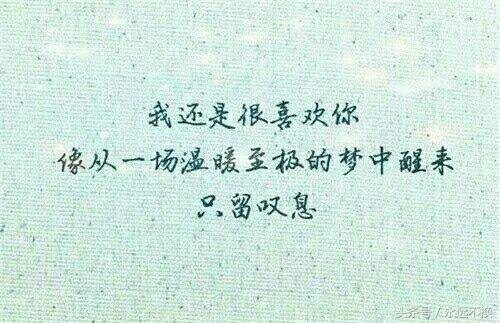 我还是很喜欢你
像从一场温暖至极的梦中醒来
只留叹息
头条号/永远不